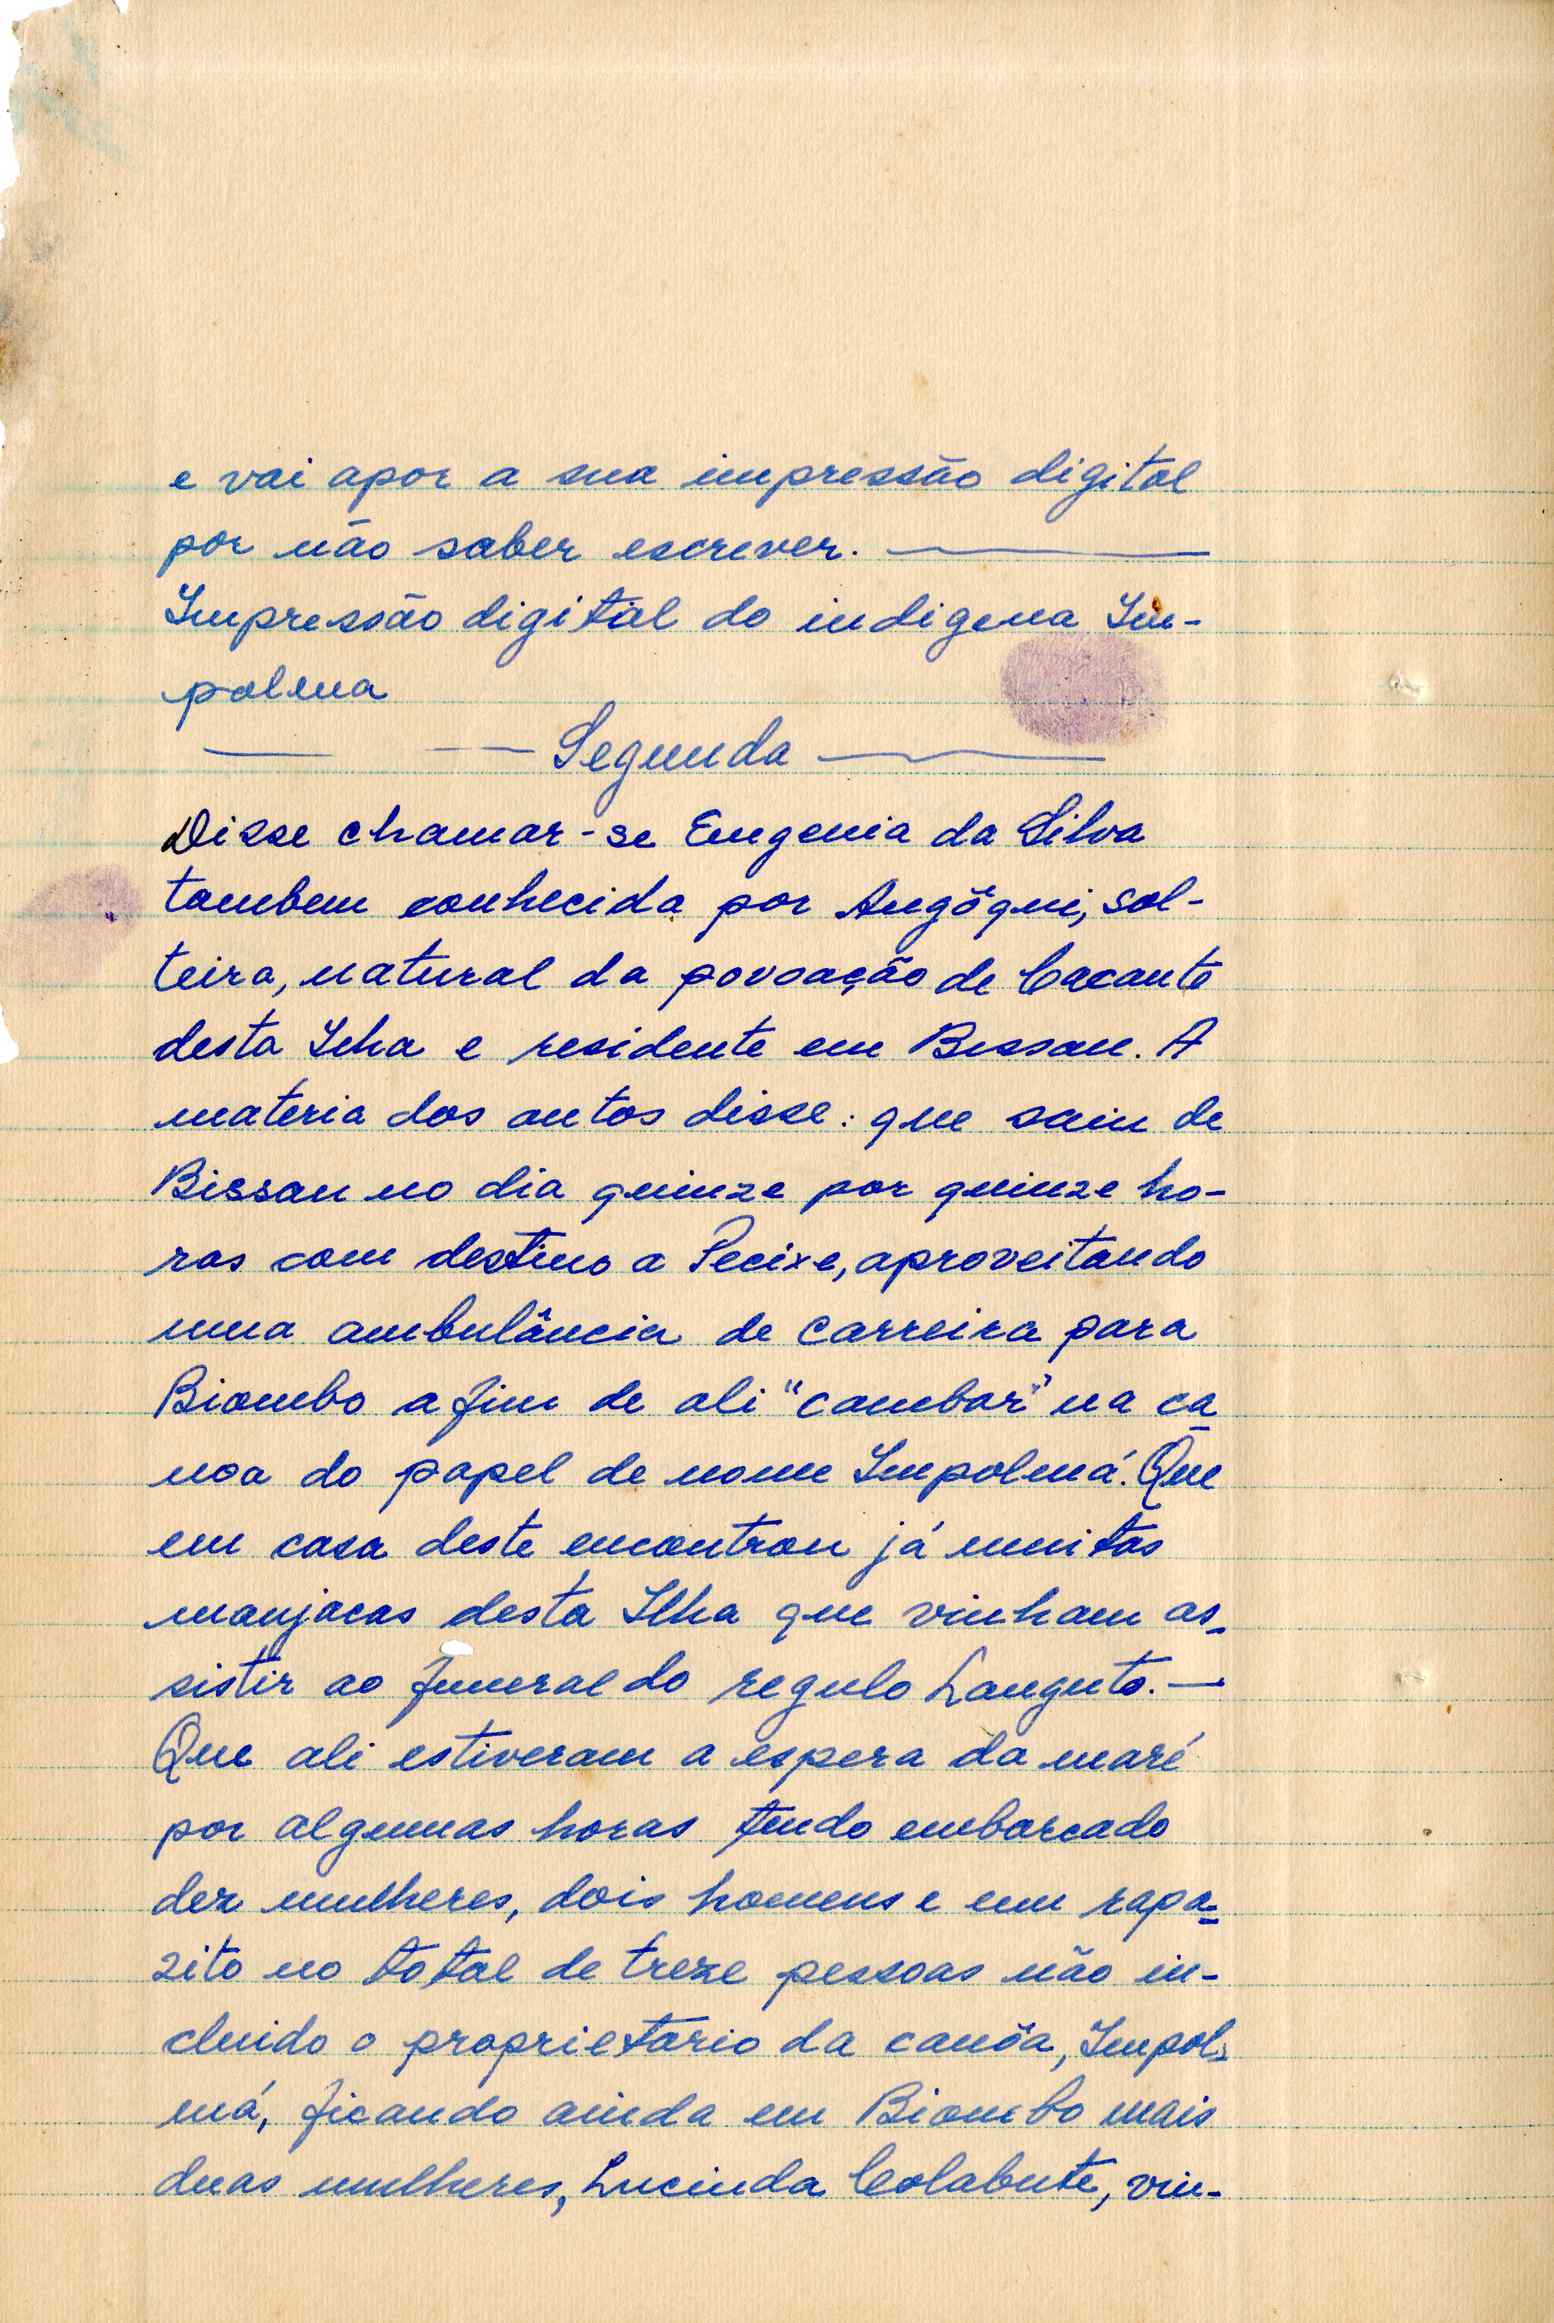 e vai apor a sua impressão digital
por não saber escrever.
Impressão digital do indigena Im-
polma
Segunda
Disse chamar-se Eugenia da Silva
tambem conhecida por Angõqui, sol-
teira, natural da povoação de Cacante
desta Ilha e residente em Bissau. A
materia dos autos disse: que saiu de
Bissau no dia quinze por quinze ho-
ras com destino a Pecixe, aproveitando
uma ambulância de carreira para
Biombo a fim de ali "cambar" na ca
noa do papel de nome Impolmá. Que
em casa deste encontrou já muitas
manjacas desta Ilha que vinham as-
sistir ao funeral do regulo Languto.
Que ali estiveram a espera da maré
por algumas horas tendo embarcado
dez mulheres, dois homens e um rapa-
zito no total de treze pessoas não in-
cluido o proprietario da canôa, Impol-
má, ficando ainda em Biombo mais
duas mulheres, Lucinda Colabute, vin-